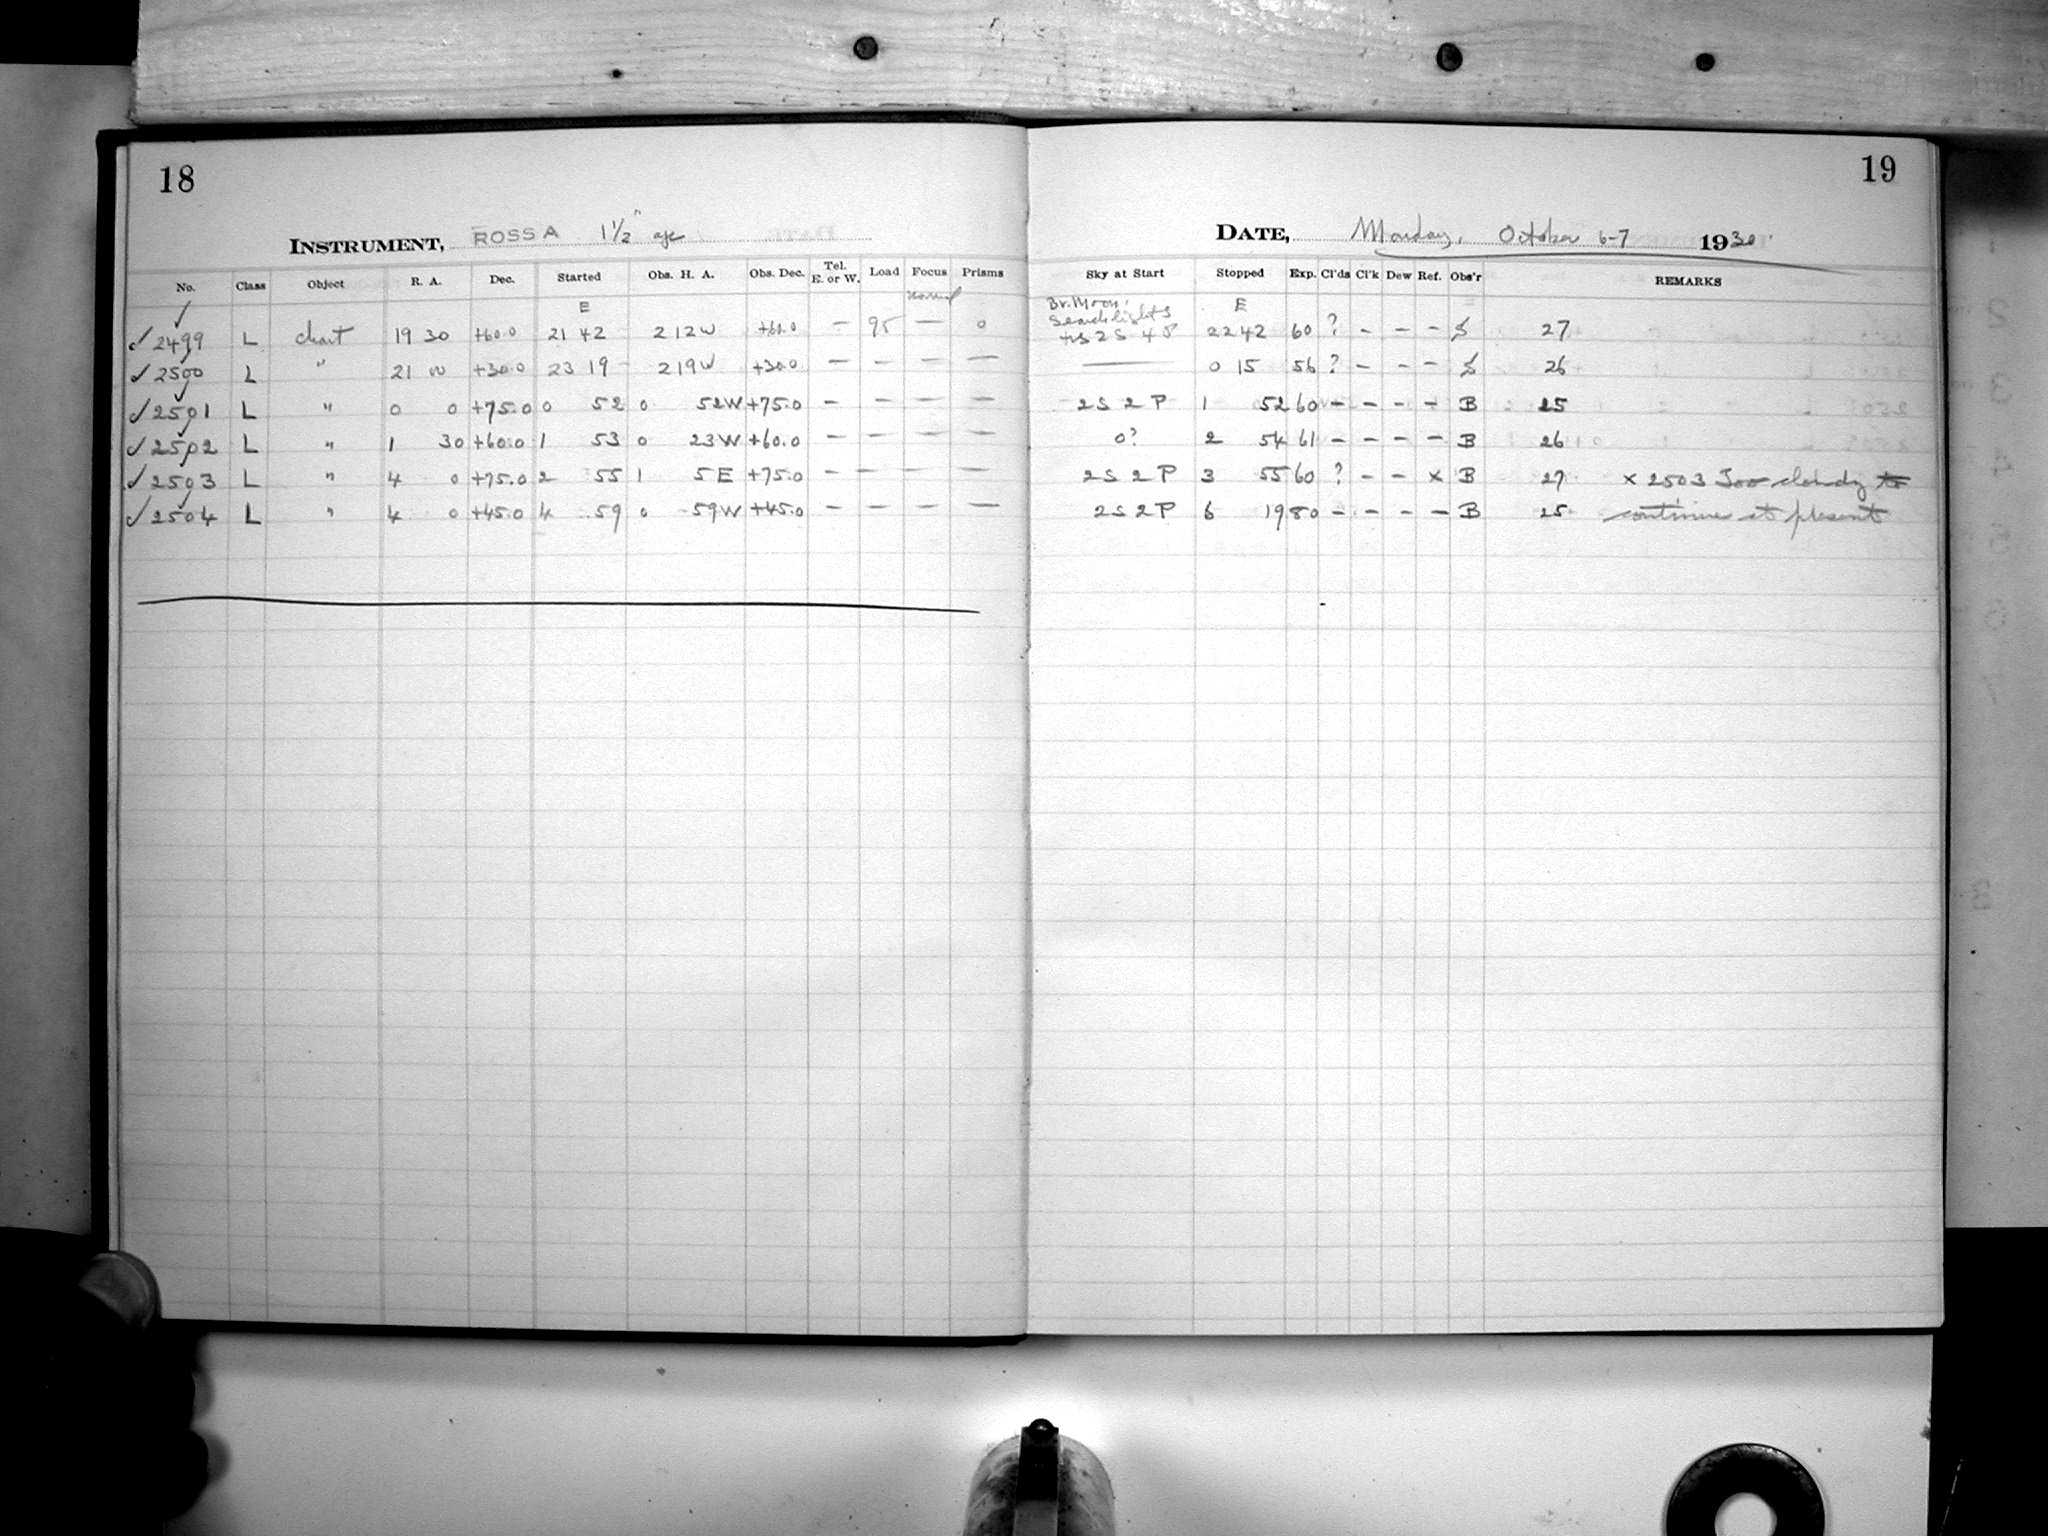 18
INSTRUMENT, ROSS A 1½" ap
No. Class Object R. A. Dec. Started Obs. H. A. Obs. Dec. Tel. E. or W. Load Focus Prisms
E normal
✓ 2499 L chart 19 30 +60.0 21 42 2 12 W +60.0 — 95 — 0
✓ 2500 L " 21 00 +30.0 23 19 2 19 W +30.0 — — — —
✓ 2501 L " 0 0 +75.0 0 52 0 52 W +75.0 — — — —
✓ 2502 L " 1 30 +60.0 1 53 0 23 W +60.0 — — — —
✓ 2503 L " 4 0 +75.0 2 55 1 5 E +75.0 — — — —
✓ 2504 L " 4 0 +45.0 4 59 0 59 W +45.0 — — — —
19
DATE, Monday, October 6-7 1930.
Sky at Start Stopped Exp. Cl'ds Cl'k Dew Ref. Obs'r REMARKS
Br. Moon, E
Searchlights
2 S 4 P 22 42 60 ? - - - S 27
—— 0 15 56 ? - - - S 26
2 S 2 P 1 52 60 - - - - B 25
0? 2 54 61 - - - - B 26
2 S 2 P 3 55 60 ? - - x B 27 x 2503 Too cloudy to
2 S 2 P 6 19 80 - - - - B 25 continue at present